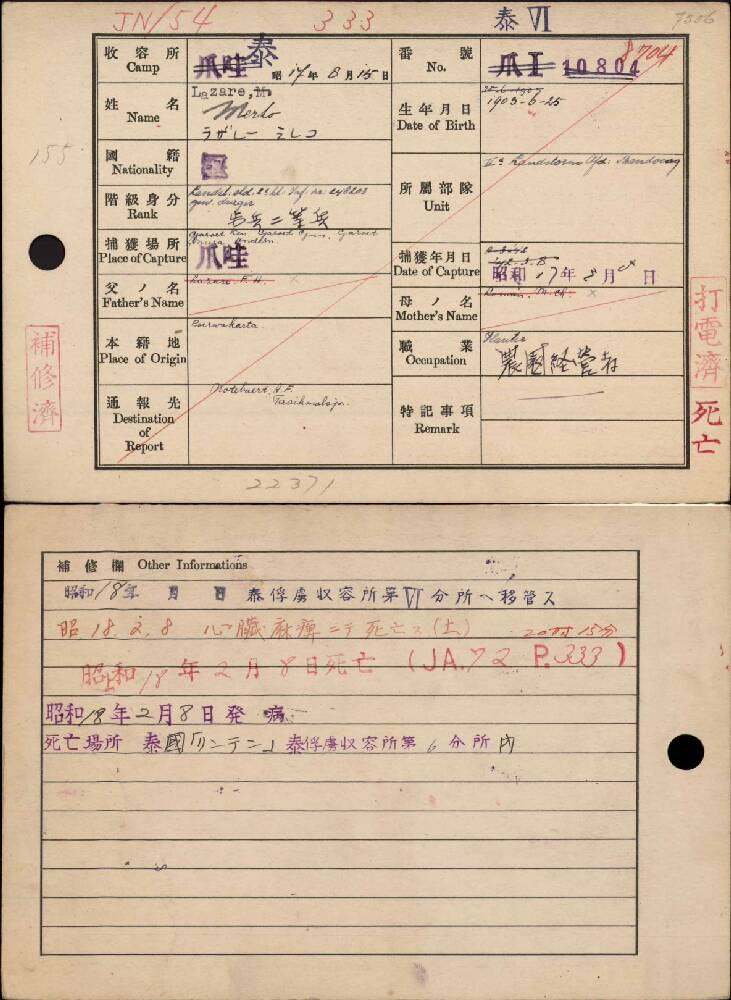 JN/54 333 泰 VI 7556
收容所 Camp 爪哇 泰 昭 17年 8月 15日
番號 No. 爪 I 10804 8704
姓名 Name Lazare, M.
ラザレー
生年月日 Date of Birth
1903-6-25
155
國籍 Nationality
階級身分 Rank
Landst. sld. 2e kl. Inf. nr.
兵二等兵
所屬部隊 Unit
捕獲場所 Place of Capture
爪哇
捕獲年月日 Date of Capture
昭和 17年 8月 日
父ノ名 Father's Name Lazare. F. H. x
母ノ名 Mother's Name x
本籍地 Place of Origin Poerwakarta.
職業 Occupation Planter
農園経営者
通報先 Destination of Report
Notebaert, H.F.
特記事項 Remark
補修濟
打電濟
死亡
22371
補修欄 Other Informations
昭和18年 月 日 泰俘虜収容所第VI分所へ移管ス
昭 18. 2. 8 心臓麻痺ニテ死亡ス(土) 20時15分
昭和18年2月8日死亡 (JA.72 P.333)
昭和18年2月8日発病
死亡場所 泰國「リンテン」泰俘虜収容所第6分所内